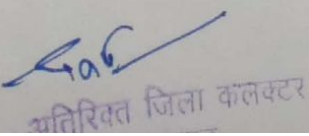 अतिरिक्त जिला कलक्टर